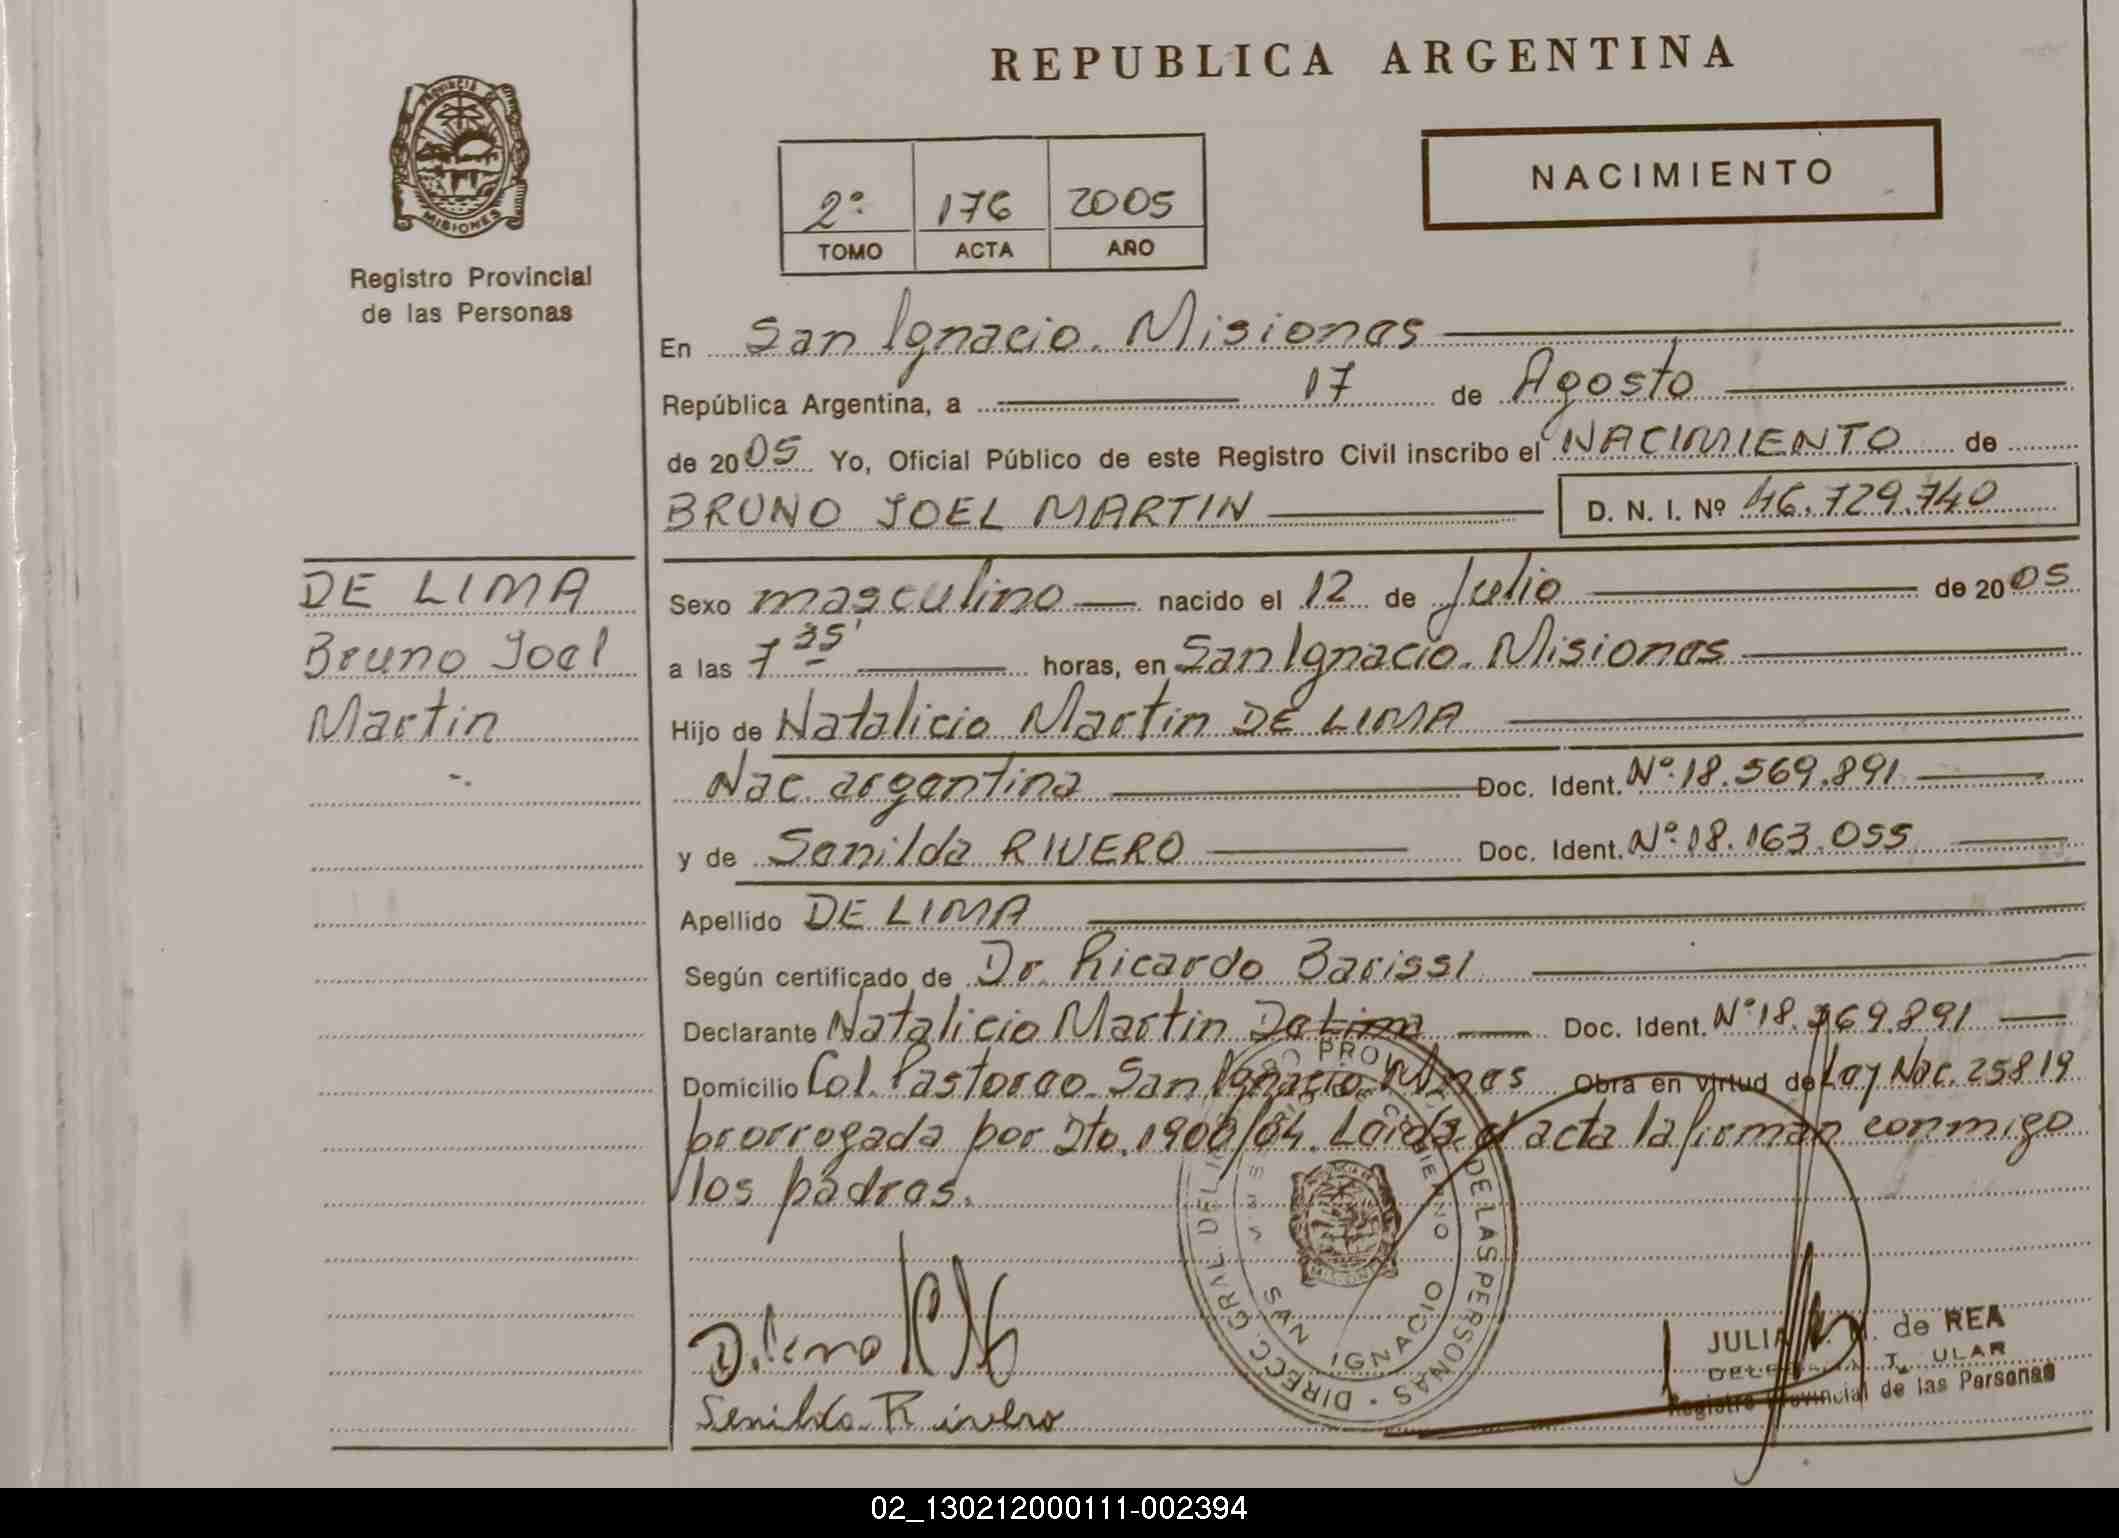 REPUBLICA ARGENTINA
PROVINCIA DE
MISIONES
Registro Provincial
de las Personas
2º 176 2005
TOMO ACTA AÑO
NACIMIENTO
En San Ignacio. Misiones
República Argentina, a 17 de Agosto
de 2005 Yo, Oficial Público de este Registro Civil inscribo el NACIMIENTO de
BRUNO JOEL MARTIN D. N. I. Nº 46.729.740
DE LIMA
Bruno Joel
Martin
Sexo masculino nacido el 12 de Julio de 2005
a las 7 35' horas, en San Ignacio. Misiones
Hijo de Natalicio Martin DE LIMA
Nac. argentina Doc. Ident. Nº 18.569.891
y de Senilda RIVERO Doc. Ident. Nº 18.163.055
Apellido DE LIMA
Según certificado de Dr. Ricardo Barissi
Declarante Natalicio Martin De Lima Doc. Ident. Nº 18.569.891
Domicilio Col. Pastoreo. San Ignacio. Mnes Obra en virtud de Ley Nac. 25819
prorrogada por Dto. 1900/04. Leida el acta la firman conmigo
los padres.
DIRECC. GRAL. DEL DE LAS PERSONAS
SAN IGNACIO
Senilda Rivero
JULIA de REA
Registro Provincial de las Personas
02_130212000111-002394